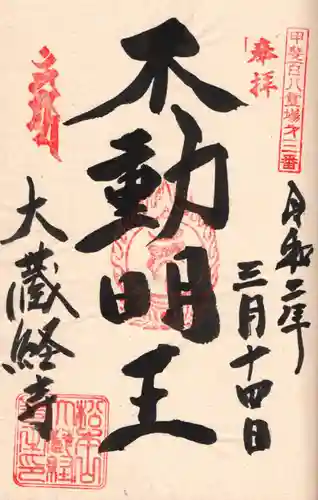 甲斐百八霊場第二番
奉拝
令和二年
三月十四日
不動明王
大蔵経寺
松本山
大蔵経
寺之印